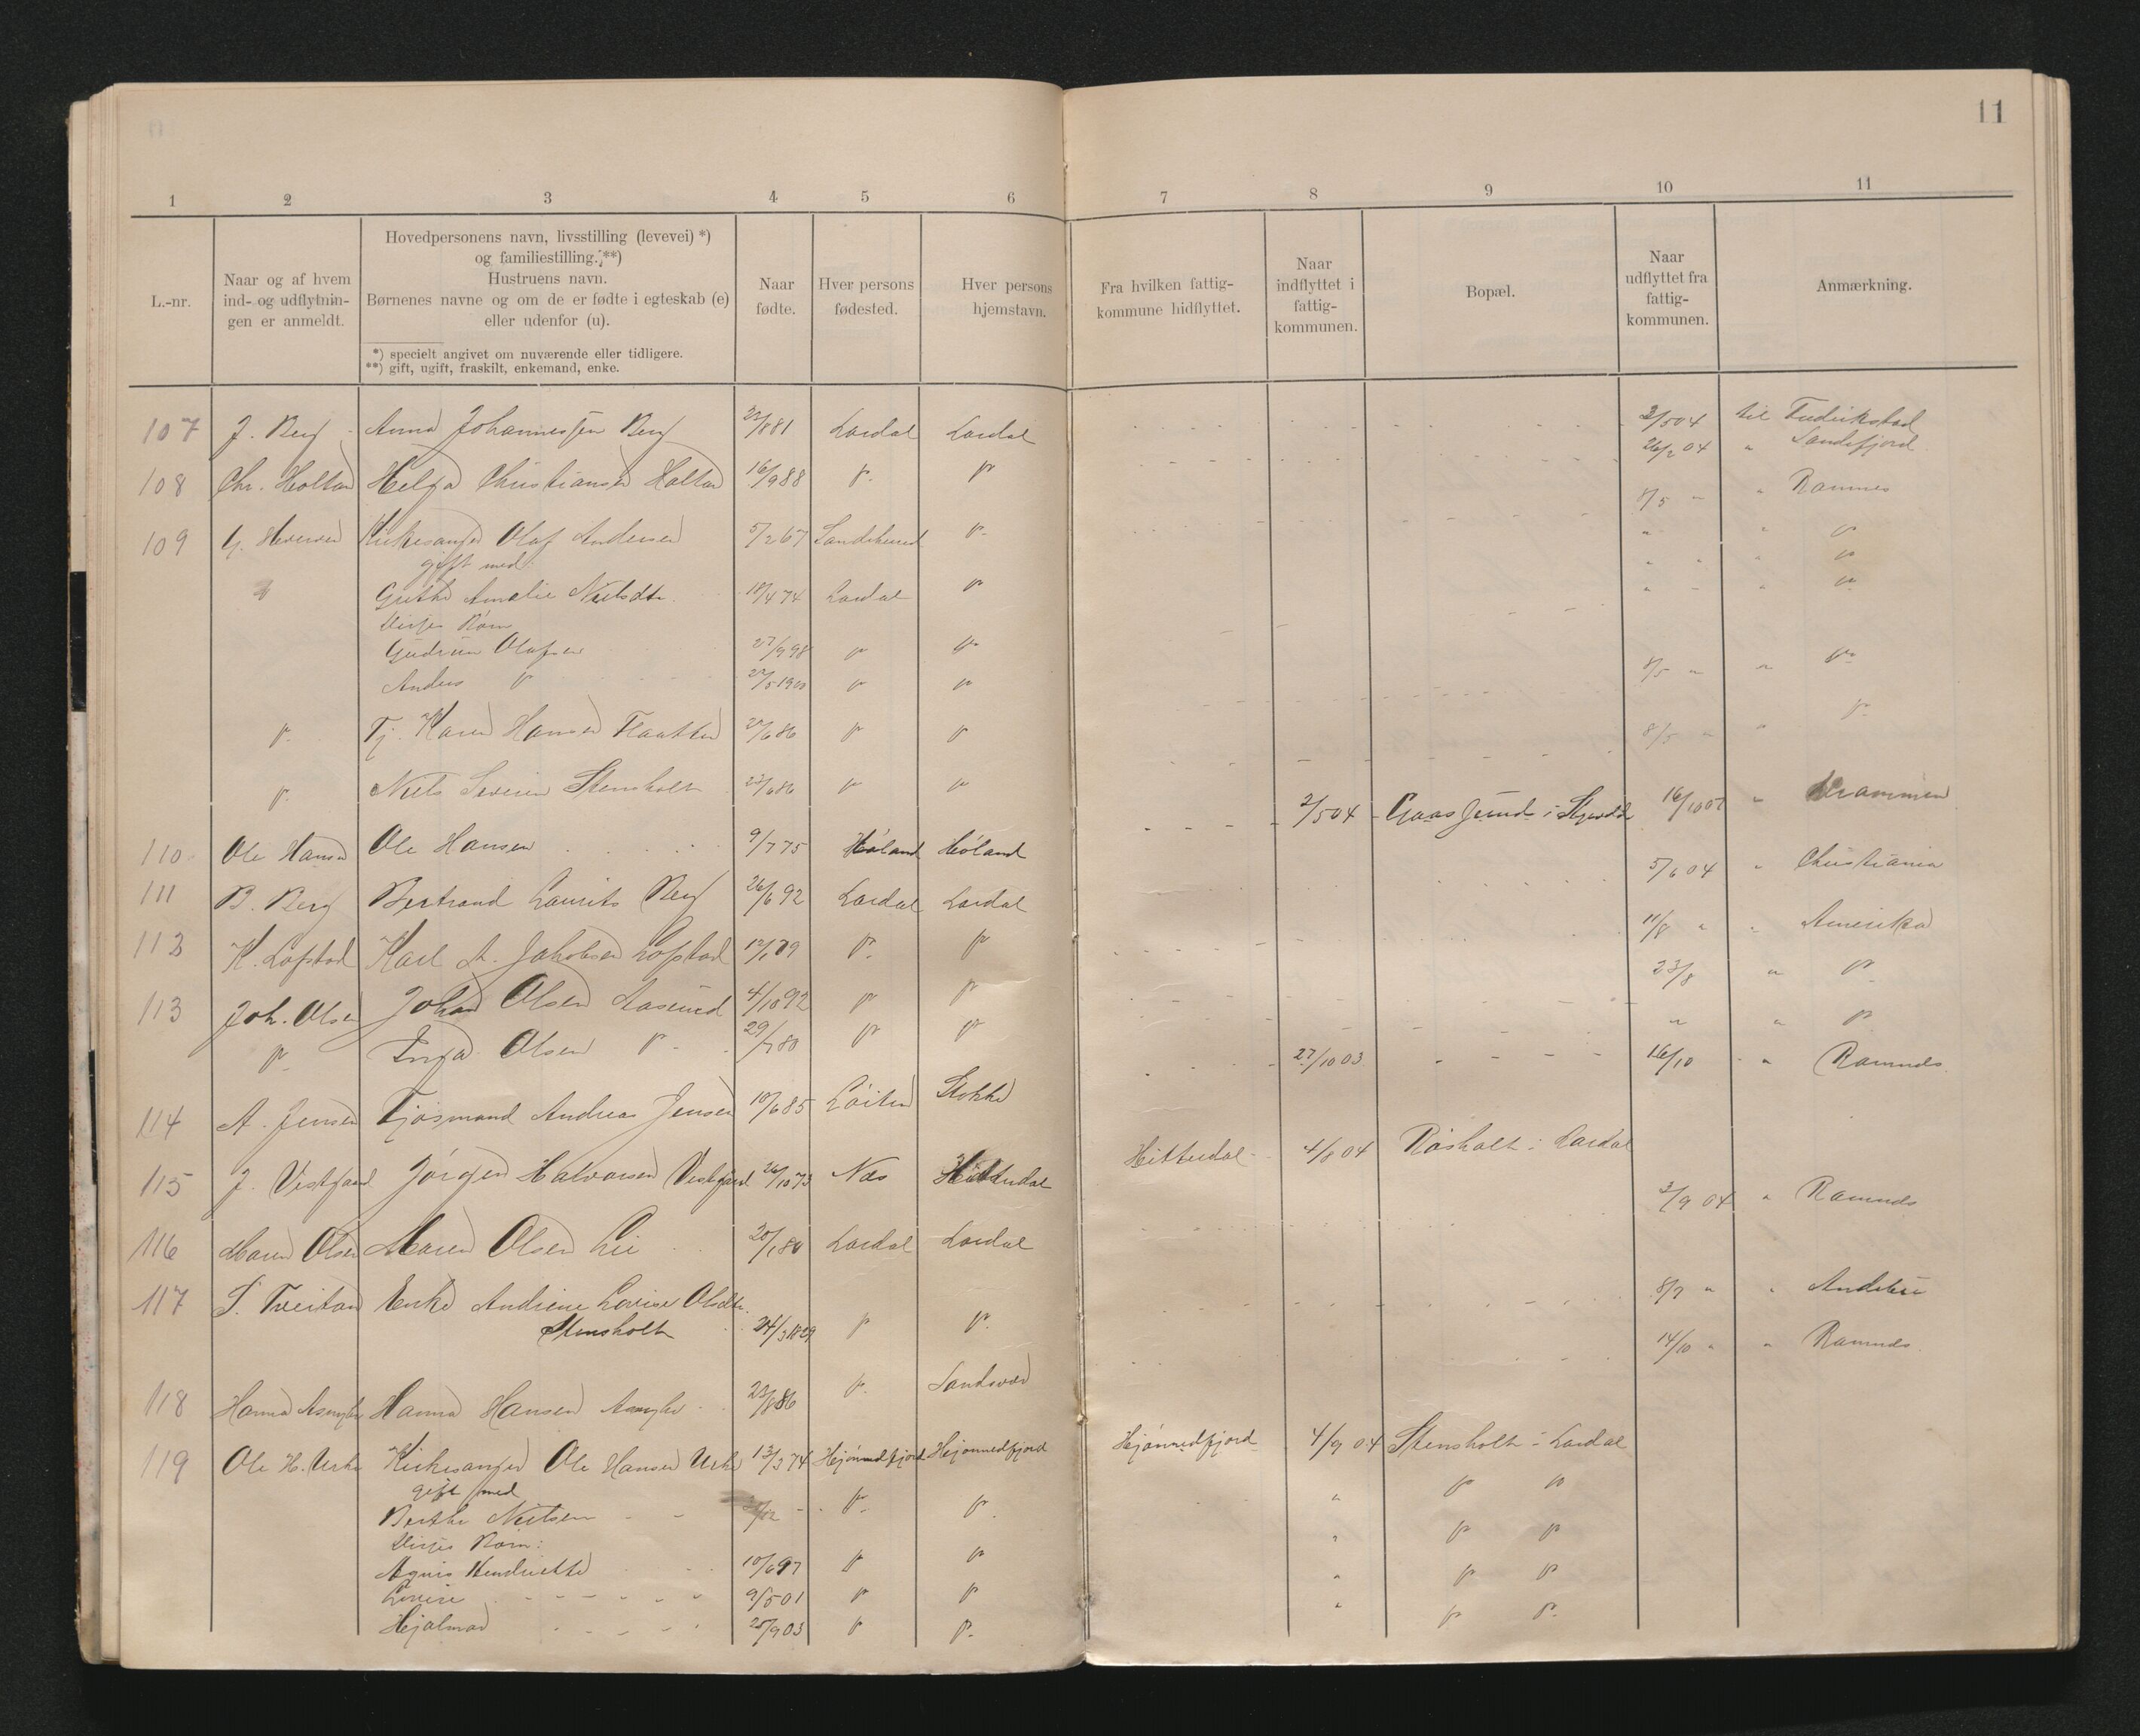 11
1 2 3 4 5 6 7 8 9 10 11
L.-nr.
Naar og af hvem
ind- og udflytnin-
gen er anmeldt.
Hovedpersonens navn, livsstilling (levevei) *)
og familiestilling. **)
Hustruens navn.
Børnenes navne og om de er fødte i egteskab (e)
eller udenfor (u).
*) specielt angivet om nuværende eller tidligere.
**) gift, ugift, fraskilt, enkemand, enke.
Naar
fødte.
Hver persons
fødested.
Hver persons
hjemstavn.
Fra hvilken fattig-
kommune hidflyttet.
Naar
indflyttet i
fattig-
kommunen.
Bopæl.
Naar
udflyttet fra
fattig-
kommunen.
Anmærkning.
107 J. Berg Anna Johannessen Berg 23/8 81 Lardal Lardal 2/5 04 til Fredrikstad
108 Chr. Holtan Helga Christiansen Holtan 16/9 88 " " 26/2 04 " Sandefjord
109 Kirkesanger Olaf Andersen 5/2 67 " 8/5 " " Ramnes
gift med
Grethe Amalie Nielsdtr. 18/4 74 Lardal " " " "
Disses Børn
Gudrun Olafsen 27/9 98 " " " " "
Anders " 22/5 1900 " " " " "
" Tj. Karen Hansen Flaatten 27/6 86 " " 8/5 " " "
" Niels Severin Stensholt 23/6 86 " " 8/5 " " "
110 Ole Hansen Ole Hansen 9/7 75 Høland Høland 2/5 04 16/10 07 " Drammen
111 B. Berg Bertrand Laurits Berg 26/6 92 Lardal Lardal 5/6 04 " Christiania
112 K. Lofstad Karl A. Jakobsen Lofstad " " 11/8 " " Amerika
113 Joh. Olsen Johan Olsen Aasrud 4/10 92 " " 23/8 " "
" Inga Olsen " 29/7 80 " " " " "
114 A. Jensen Tjosmand Andreas Jensen 10/6 85 Løiten Stokke 27/10 03 16/10 " Ramnes
115 J. Vestgaard Jørgen Halvorsen Vestgaard 26/10 73 Nes Hitterdal Hitterdal 4/8 04 Røsholt i Lardal
116 Maren Olsen Maren Olsen Lie 20/1 84 Lardal Lardal 3/9 04 " Ramnes
117 S. Tveitan Enke Andrine Lovise Olsdtr.
Stensholt 24/3 1829 " " 8/7 " " Andebu
118 Hanna Hansen 23/8 86 " Sandsvær 14/10 " " Ramnes
119 Ole H. Urke Kirkesanger Ole Hansen Urke 13/3 74 Hjørundfjord Hjørundfjord Hjørundfjord 4/9 04 Stensholt i Lardal
gift med
Berthe Nielsen " " " " "
Disses Børn:
Agnis Hendriette 10/6 97 " " " " "
Lovise 9/5 01 " " " " "
Hjalmar 25/9 03 " " " " "